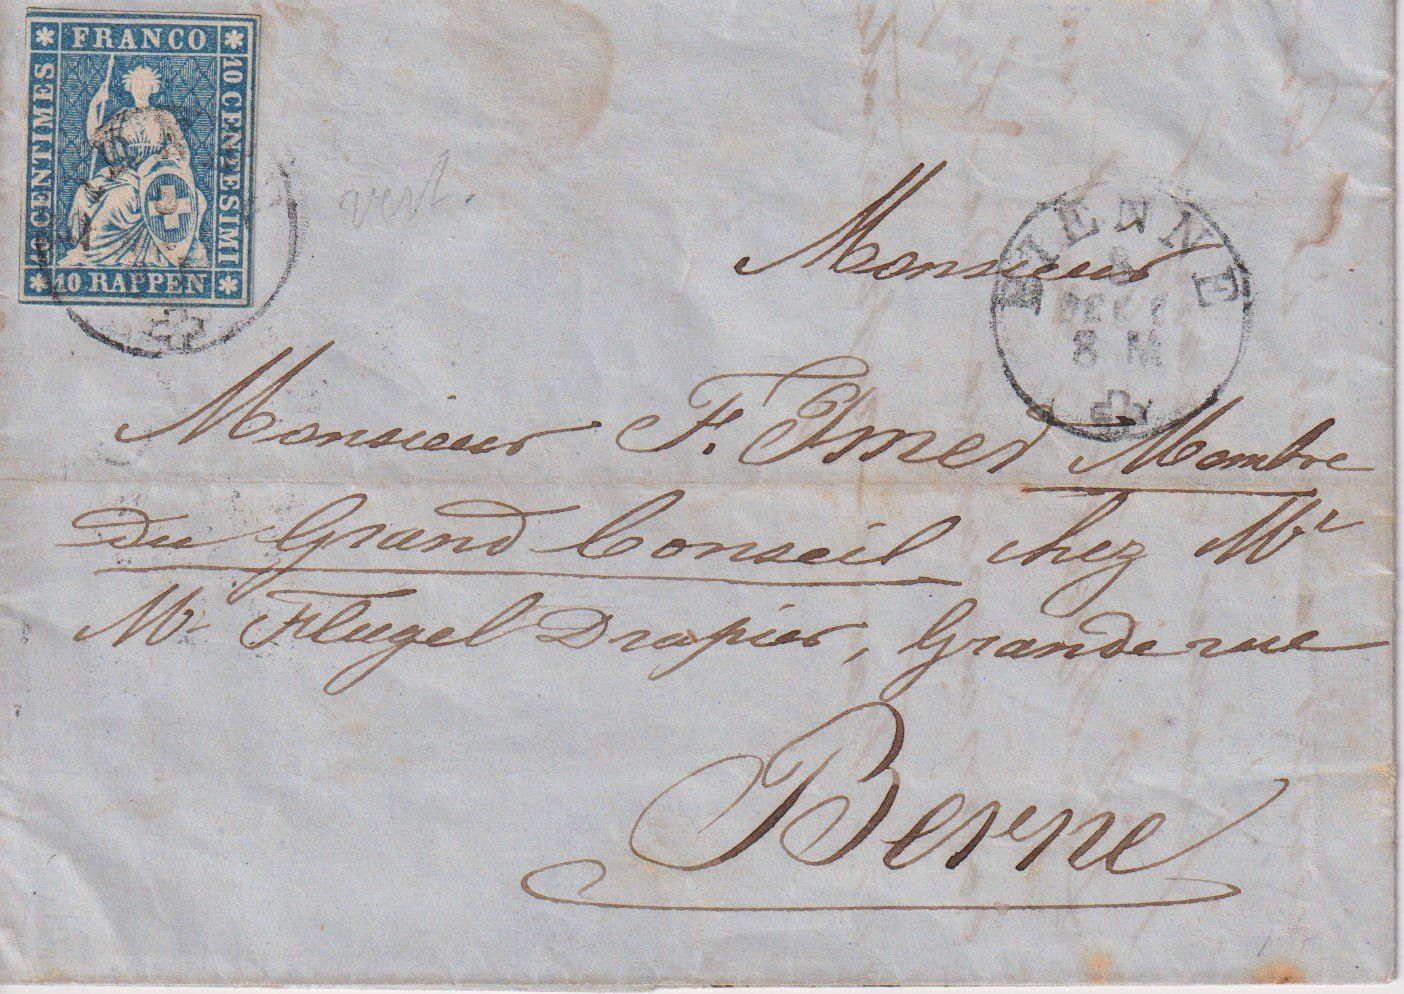 FRANCO
10 CENTIMES
10 CENTESIMI
10 RAPPEN
vert.
BIENNE
8
DEC
8 M
Monsieur
Monsieur F. Imer Membre
du Grand Conseil chez Mr
Mr Flugel Drapier, Grande rue
Berne